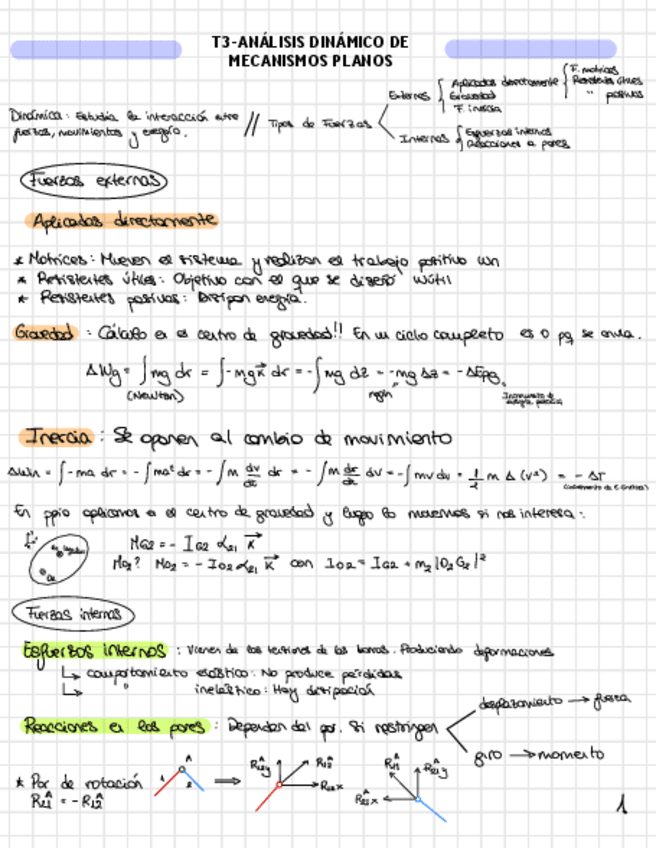 T3-ANÁLISIS DINÁMICO DE
MECANISMOS PLANOS
Dinámica: Estudia la interacción entre
fuerzas, movimientos y energía.
// Tipos de Fuerzas
Externas
Aplicadas directamente
F. motrices
Resistentes útiles
" pasivas
Gravedad
F. inercia
Internas
Esfuerzos internos
Reacciones a pares
Fuerzas externas
Aplicadas directamente
* Motrices: Mueven el sistema y realizan el trabajo positivo Wm
* Resistentes útiles: Objetivo con el que se diseñó Wútil
* Resistentes pasivas: Disipan energía.
Gravedad: Cálculo en el centro de gravedad!! En un ciclo completo es 0 pq se anula.
ΔWg = ∫mg dr = ∫-mg k⃗ dr = -∫mg dz = -mg Δz = -ΔEpg
(Newton)
Incremento de energía potencial
Inercia: Se oponen al cambio de movimiento
ΔWin = ∫-ma dr = -∫ma^t dr = -∫m dv/dt dr = -∫m dr/dt dv = -∫mv dv = 1/2 m Δ(v²) = -ΔT
(incremento de E. Cinética)
En ppio aplicamos en el centro de gravedad y luego lo movemos si nos interesa:
M_G2 = - I_G2 α_21 k⃗
M_O2? M_O2 = - I_O2 α_21 k⃗ con I_O2 = I_G2 + m_2 |O_2G_2|²
Fuerzas internas
Esfuerzos internos: Vienen de las tensiones de las barras. Produciendo deformaciones
↳ comportamiento elástico: No produce pérdidas
↳ " inelástico: Hay disipación
Reacciones en los pares: Dependen del par. Si restringen
desplazamiento → fuerza
giro → momento
* Par de rotación
R_21^A = - R_12^A
A
1
2
⇒
R_12y^A
R_12^A
R_12x^A
R_21^A
R_21y^A
R_21x^A
1